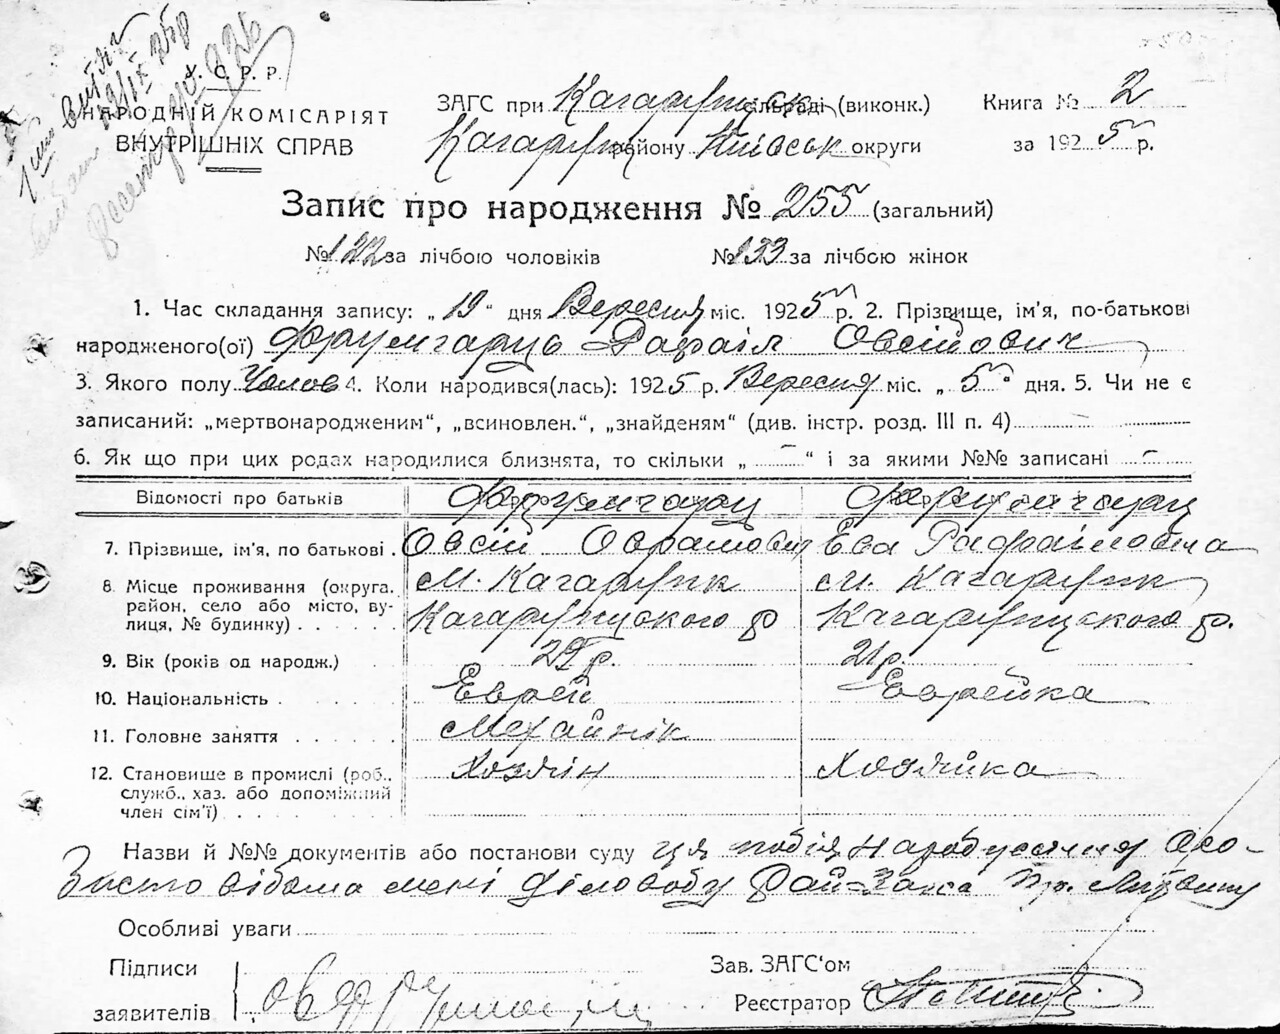 У. С. Р. Р.
НАРОДНІЙ КОМІСАРІЯТ
ВНУТРІШНІХ СПРАВ
ЗАГС при Кагарлицьк сільраді (виконк.)
Кагарлиц району Київськ округи
Книга № 2
за 1925 р.
Запис про народження № 255 (загальний)
№ 122 за лічбою чоловіків № 133 за лічбою жінок
1. Час складання запису: „19“ дня Вересня міс. 1925 р. 2. Прізвище, ім'я, по-батькові
народженого(ої) Фрумгарць Рафаіл Овсійович
3. Якого полу Чолов 4. Коли народився(лась): 1925 р. Вересня міс. „5“ дня. 5. Чи не є
записаний: „мертвонародженим“, „всиновлен.“, „знайденям“ (див. інстр. розд. III п. 4)
6. Як що при цих родах народилися близнята, то скільки „ - “ і за якими №№ записані -
Відомості про батьків
Фрумгарц Фрумгарц
7. Прізвище, ім'я, по батькові . Овсій Аврамович Ева Рафаіловна
8. Місце проживання (округа, район, село або місто, вулиця, № будинку) . . . . . м. Кагарлик м. Кагарлик
Кагарлицького р Кагарлицького р.
9. Вік (років од народж.) . 29 р. 21 р.
10. Національність . Еврей Еврейка
11. Головне заняття . . . . . . Механік
12. Становище в промислі (роб., Хозяін Хозяйка
служб., хаз. або допоміжний
член сім'ї) . . . . . . . .
Назви й №№ документів або постанови суду ця подія народження осо-
бисто відома мені діловоду Рай-Загса
Особливі уваги
Підписи
заявителів
Зав. ЗАГС'ом
Реєстратор